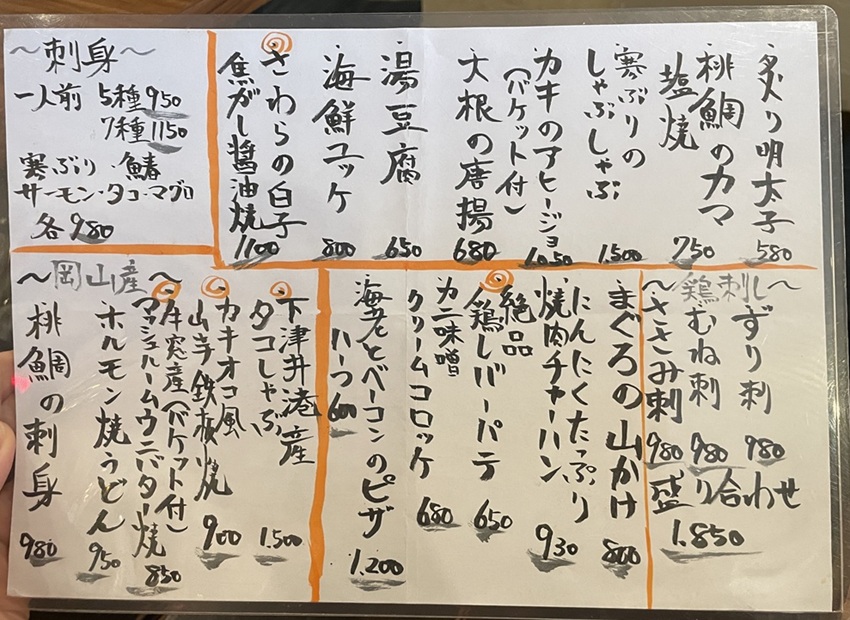 〜刺身〜
一人前 5種950
7種1150
寒ぶり・鰆
サーモン・タコ・マグロ
各980
炙り明太子
580
桃鯛のカマ
塩焼
750
寒ぶりの
しゃぶしゃぶ
1,500
カキのアヒージョ
(バケット付)
1,050
大根の唐揚
680
湯豆腐
650
海鮮ユッケ
800
さわらの白子
焦がし醤油焼
1100
〜鶏刺し〜
ずり刺
980
むね刺
980
ささみ刺
980
盛り合わせ
1.850
まぐろの山かけ
800
にんにくたっぷり
焼肉チャーハン
930
絶品
鶏レバーパテ
650
カニ味噌
クリームコロッケ
680
海老とベーコンのピザ
1.200
ハーフ600
〜岡山産〜
下津井港産
タコしゃぶ
1.500
カキオコ風
山芋鉄板焼
900
牛窓産(バケット付)
マッシュルームウニバター焼
850
ホルモン焼うどん
950
桃鯛の刺身
980